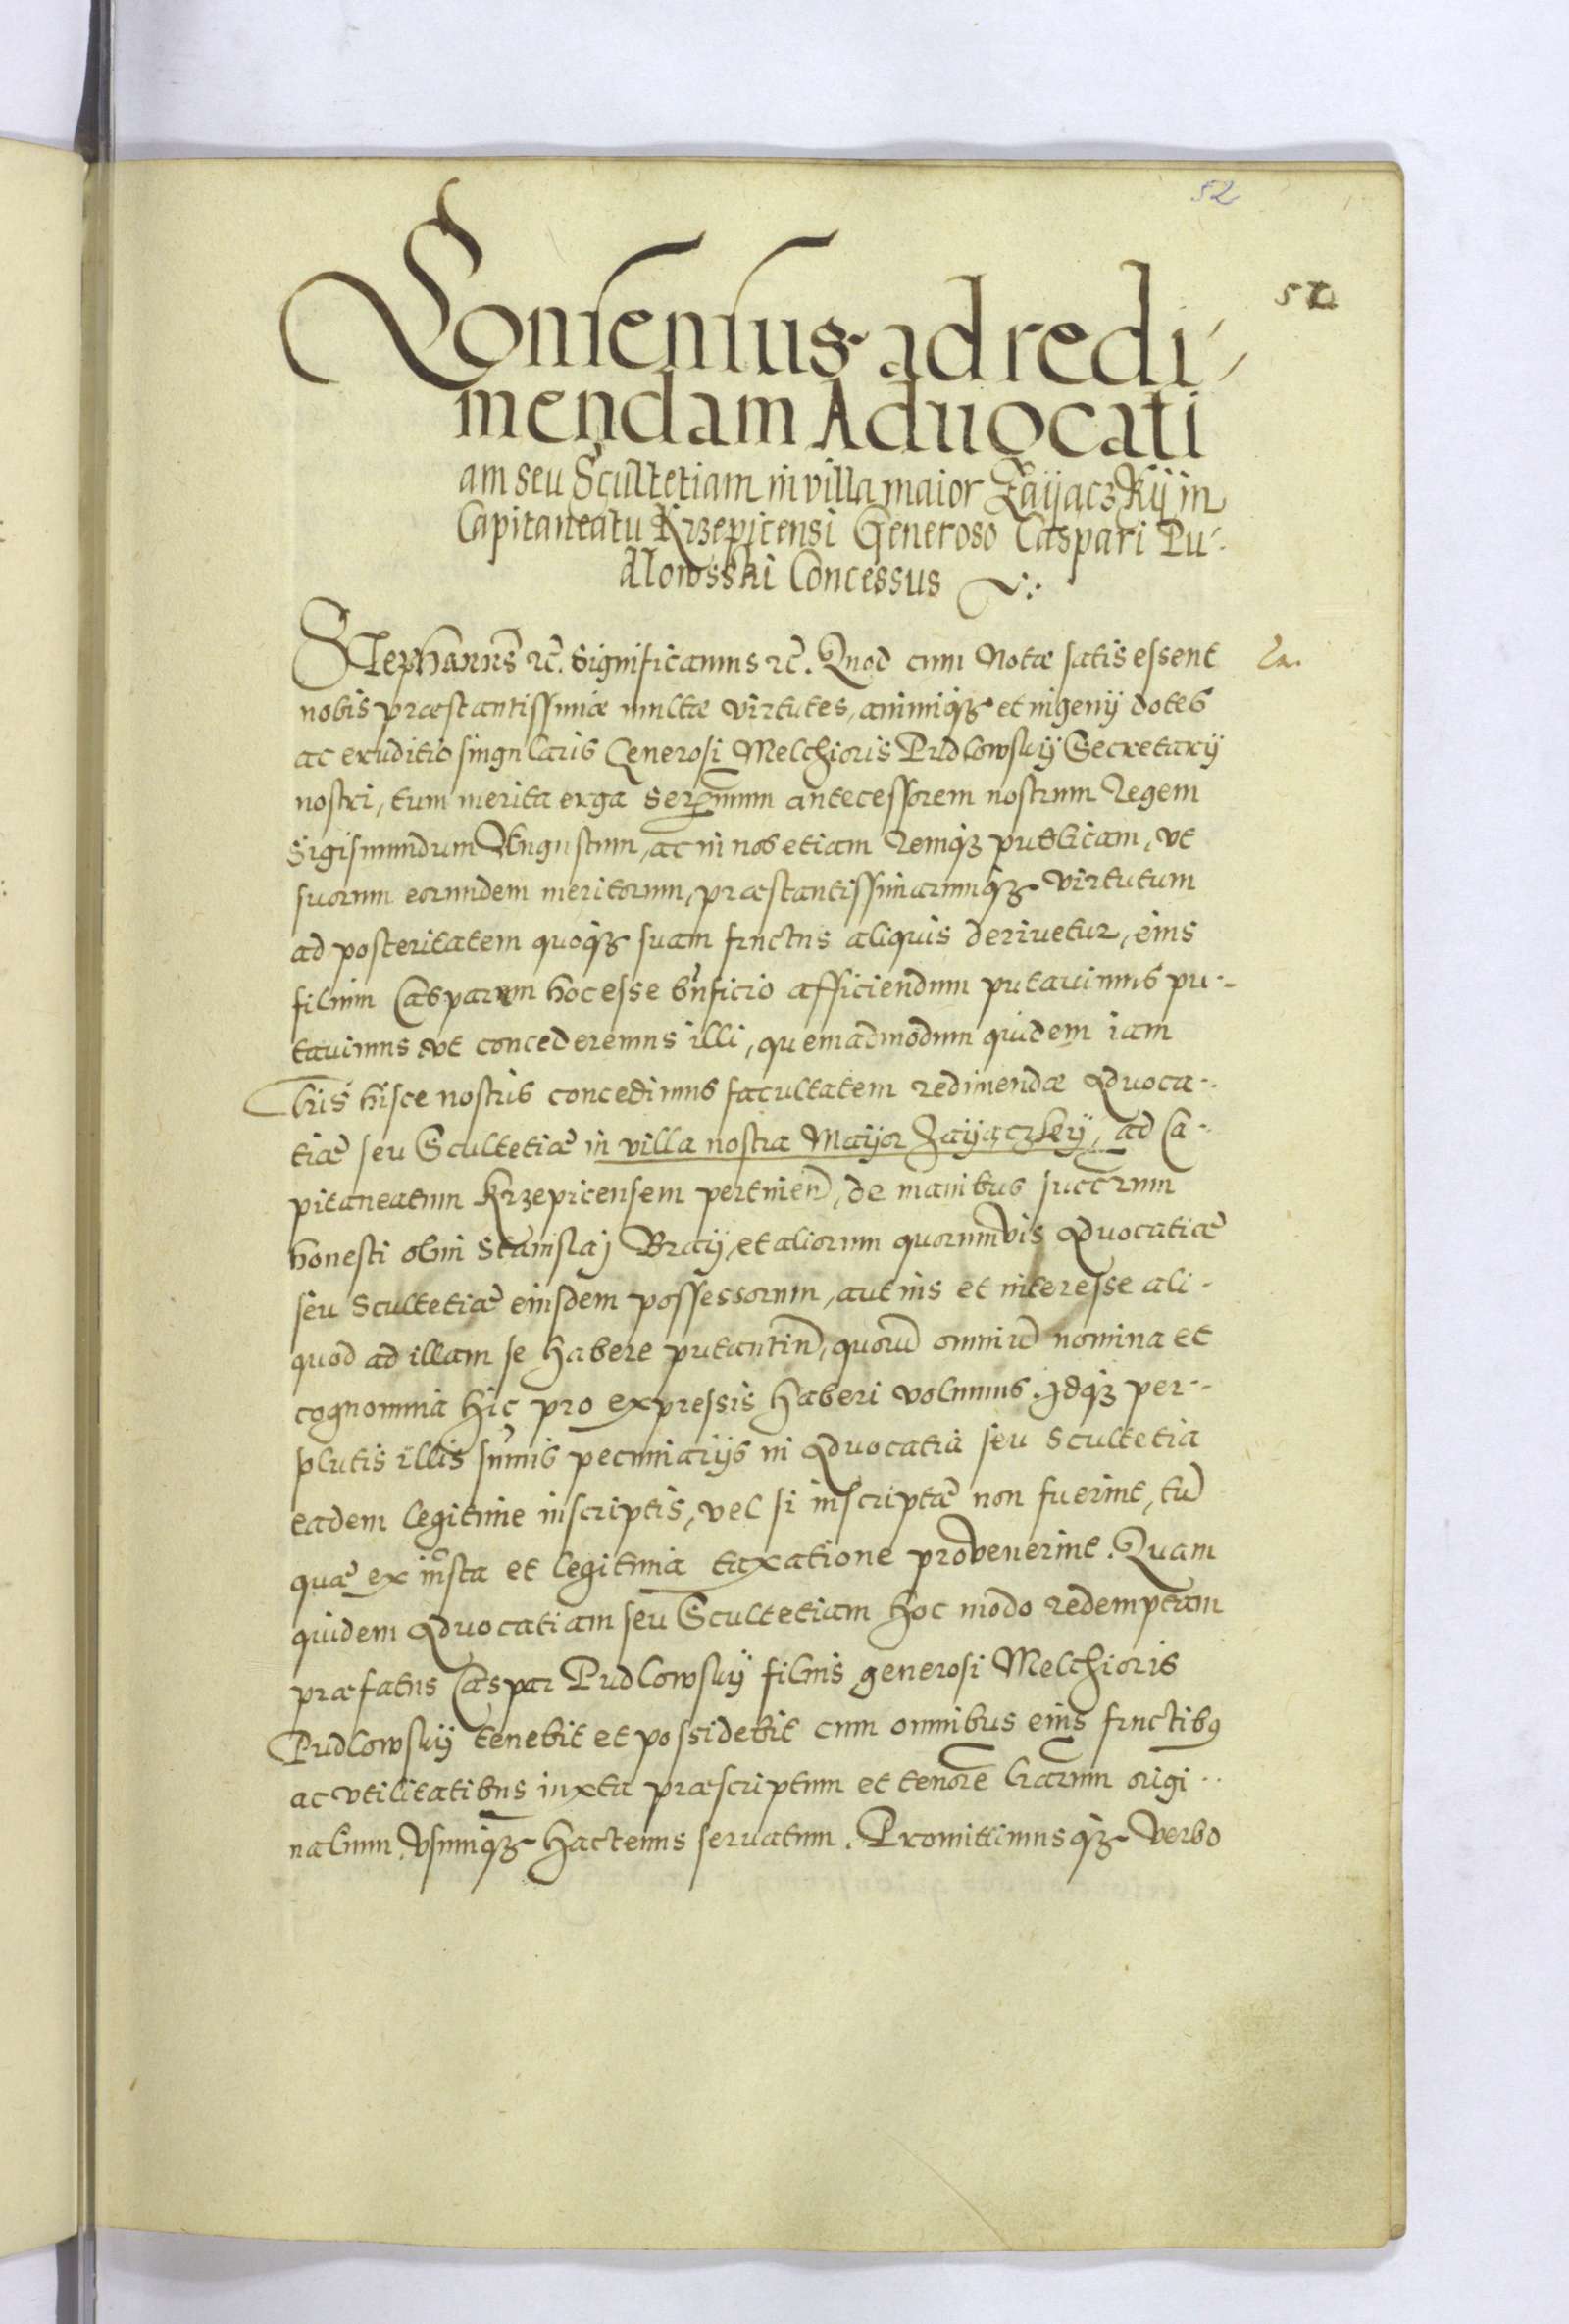 52
52
Consensus ad redi-
mendam Aduocati
am seu Scultetiam in villa maior Zaÿaczkÿ in
Capitaneatu Krzepicensi Generoso Caspari Pu-
dlowsski Concessus
Stephanus etc. Significamus etc. Quod cum Notæ satis essent
nobis præstantissimæ multæ virtutes, animiqȝ et ingenij dotes
ac eruditio singularis Generosi Melchioris Pudlowskÿ Secretarÿ
nostri, tum merita erga Serēnum antecessorem nostrum Regem
Sigismundum Augustum, ac in nos etiam Remqȝ publicam, vt
suorum eorundem meritorum, præstantissimarumqȝ virtutum
ad posteritatem quoqȝ suam fructus aliquis deriuetur, eius
filium Casparum hoc esse bn̄ficio afficiendum putauimus pu-
tauimus vt concederemus illi, quemadmodum quidem iam
Lr̄is hisce nostris concedimus facultatem redimendæ Aduoca-
tiæ seu Scultetiæ in villa nostra Maÿor Zaÿączkÿ, ad Ca-
pitaneatum Krzepicensem pertinen̄, de manibus succrum
honesti olim Stanislaj Braÿ, et aliorum quorumvis Aduocatiæ
seu Scultetiæ eiusdem possessorum, aut ius et interesse ali-
quod ad illam se habere putantiū, quorū omniū nomina et
cognomina hic pro expressis haberi volumus. Idqȝ per-
solutis illis sūmis pecuniarÿs in Aduocatia seu Scultetia
eadem legitime inscriptis, vel si inscriptæ non fuerint, tū
quæ ex iusta et legitima taxatione provenerint. Quam
quidem Aduocatiam seu Scultetiam hoc modo redemptam
præfatus Caspar Pudlowskÿ filius generosi Melchioris
Pudlowskÿ tenebit et possidebit cum omnibus eius fructibꝰ
ac vtilitatibus iuxta præscriptum et tenorē lr̄arum origi-
nalium, vsumqȝ hactenus seruatum. Promittimusqȝ verbo